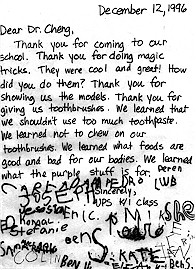 December 12, 1996
Dear Dr. Cheng,
Thank you for coming to our
school. Thank you for doing magic
tricks. They were cool and great! How
did you do them? Thank you for
showing us the models. Thank you for
giving us toothbrushes. We learned that
we shouldn't use too much toothpaste.
We learned not to chew on our
toothbrushes. We learned what foods are
good and bad for our bodies. We learned
what the purple stuff is for.
PEDRO
Sincerely,
UPS K/1 class
Eric
Stefanie
KATE
Ben S.